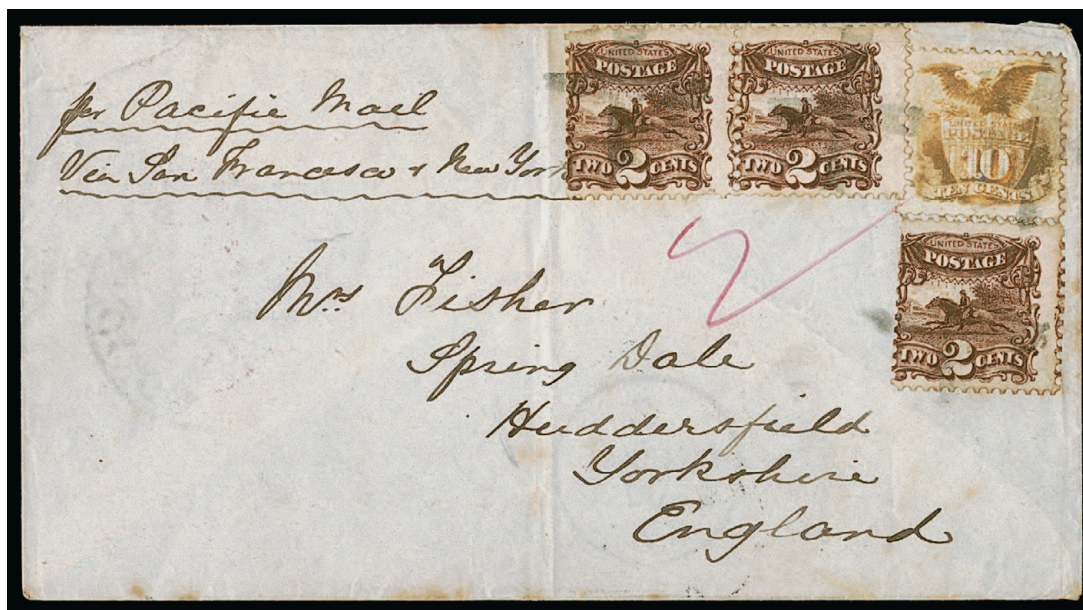 per Pacific Mail
Via San Francisco & New York
UNITED STATES
POSTAGE
TWO 2 CENTS
UNITED STATES
POSTAGE
TWO 2 CENTS
UNITED STATES
POSTAGE
10
TEN CENTS
UNITED STATES
POSTAGE
TWO 2 CENTS
Mrs Fisher
Spring Dale
Huddersfield
Yorkshire
England